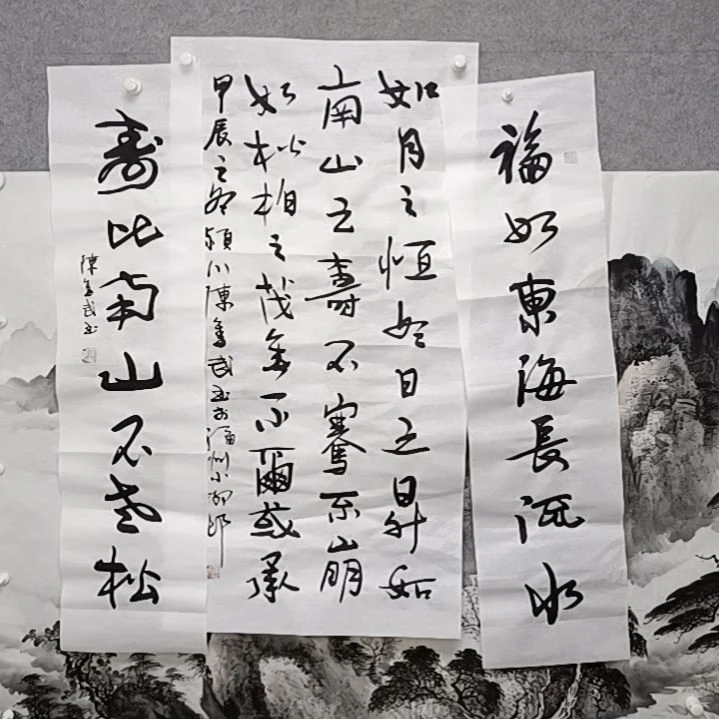 福如東海長流水
如月之恒如日之昇如
南山之壽不騫不崩
如松柏之茂無不爾或承
甲辰之冬潁川陳武书於福州小柳邨
壽比南山不老松
陳武书